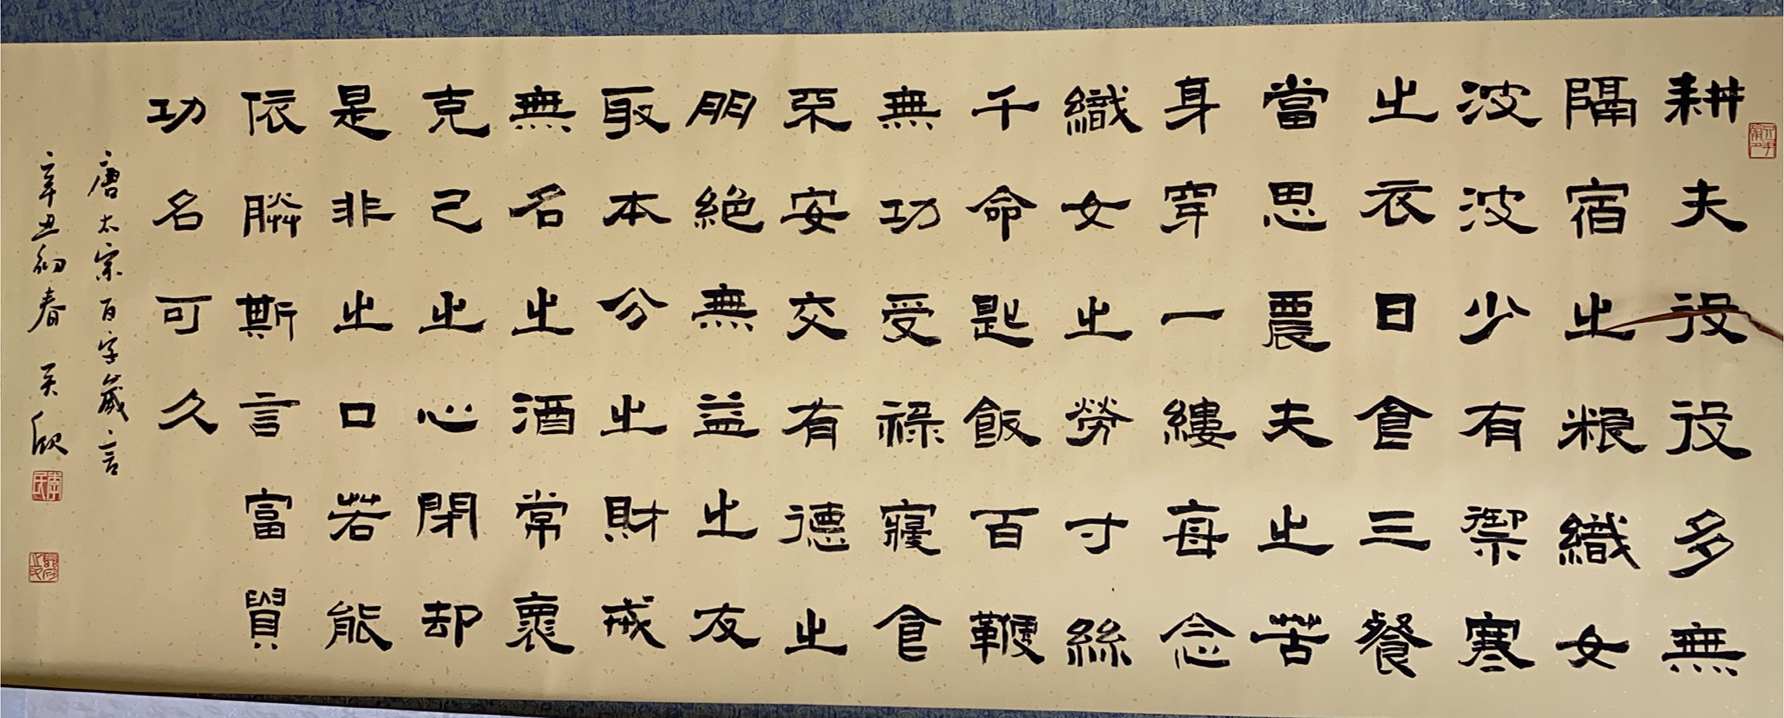 耕夫役役多無
隔宿之粮織女
波波少有禦寒
之衣日食三餐
當思農夫之苦
身穿一縷每念
織女之勞寸絲
千命匙飯百鞭
無功受祿寢食
不安交有德之
朋絕無益之友
取本分之財戒
無名之酒常褱
克己之心閉却
是非之口若能
依朕斯言富貴
功名可久
唐太宗百字箴言
辛丑初春 吴欣